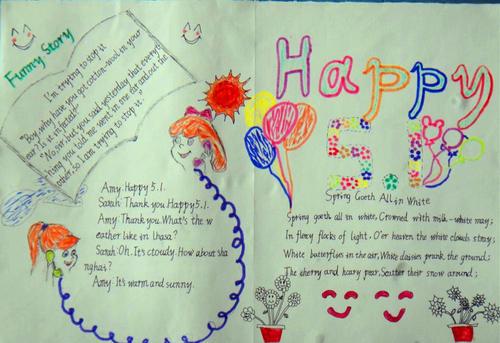 Funny Story
I'm trying to stop it
"Boy, why have you got cotton-wool in your
ear? Is it infected?"
"No, sir, but you said yesterday that everyt
hing you told me went in one ear and out the
other, so I am trying to stop it."
Amy: Happy 5.1.
Sarah: Thank you. Happy 5.1.
Amy: Thank you. What's the w
eather like in lhasa?
Sarah: Oh. It's cloudy. How about sha
nghai?
Amy: It's warm and sunny.
Happy
5.1
Spring Goeth All in White
Spring goeth all in white, Crowned with milk-white may;
In fleecy flocks of light. O'er heaven the white clouds stray;
White butterflies in the air; White daisies prank the ground;
The cherry and hoary pear, Scatter their snow around;